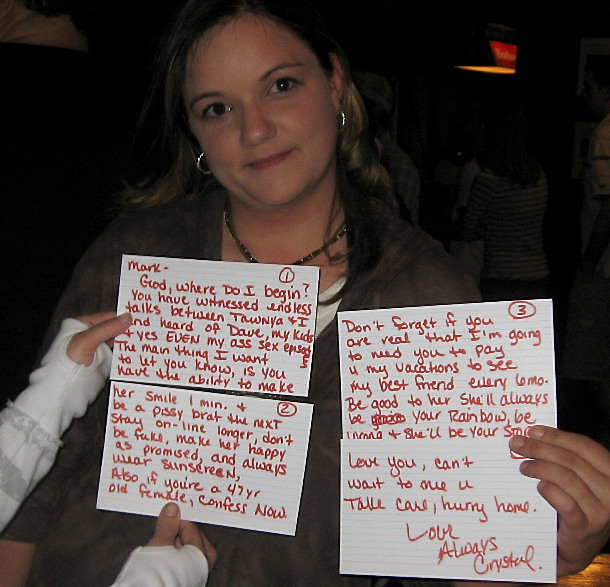 ①
Mark-
God, where Do I begin?
You have witnessed endless
talks between Tawnya & I
and heard of Dave, my kids
& yes EVEN my ass sex episode
The main thing I want
to let you know, is you
have the ability to make
②
her smile 1 min. &
be a pissy brat the next
Stay on-line longer, don't
be fake, make her happy
as promised, and always
wear sunscreen,
Also if you're a 47yr
old female, confess Now
③
Don't forget if you
are real that I'm going
to need you to pay
4 my vacations to see
my best friend every 6mo.
Be good to her She'll always
be your Rainbow, be
& she'll be your
Love you, can't
wait to me u
Take care, hurry home.
Love
Always
Crystal.